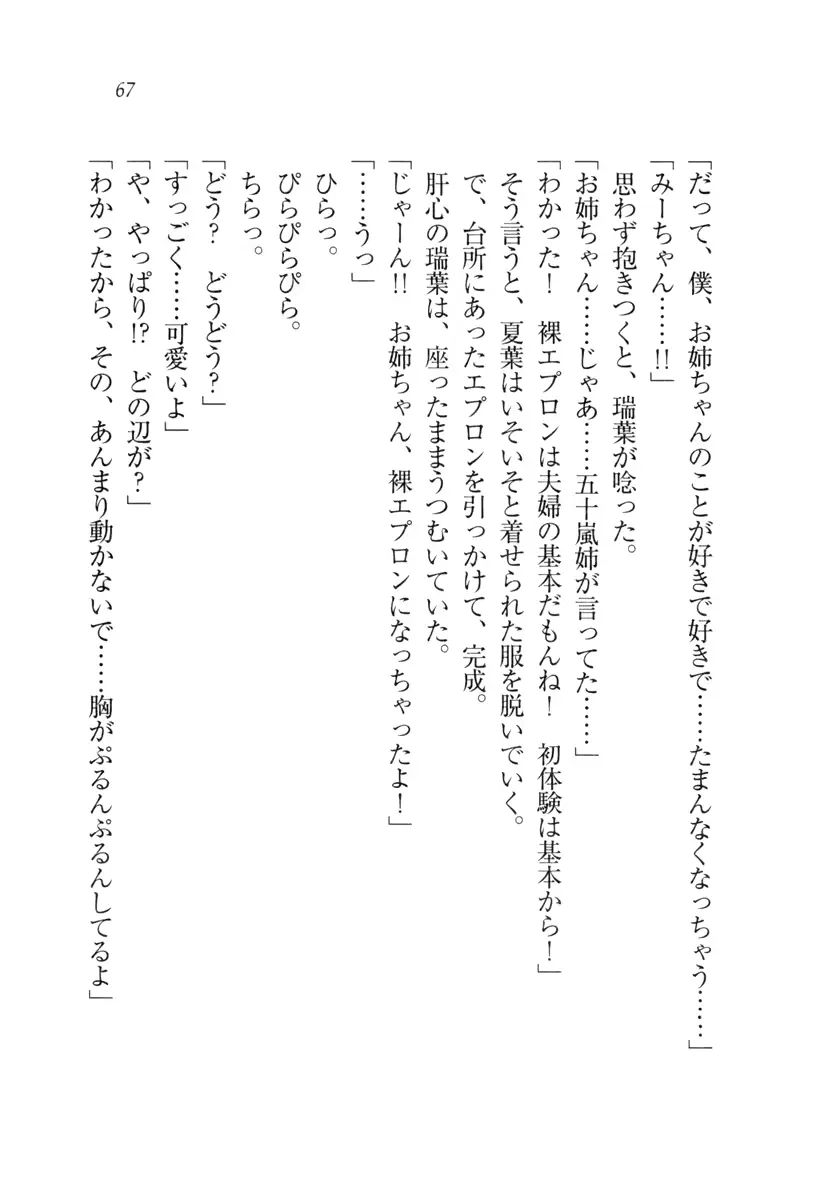 67
「だって、僕、お姉ちゃんのことが好きで好きで……たまんなくなっちゃう……」
「みーちゃん……!!」
思わず抱きつくと、瑞葉が唸った。
「お姉ちゃん……じゃあ……五十嵐姉が言ってた……」
「わかった！　裸エプロンは夫婦の基本だもんね！　初体験は基本から！」
そう言うと、夏葉はいそいそと着せられた服を脱いでいく。
で、台所にあったエプロンを引っかけて、完成。
肝心の瑞葉は、座ったままうつむいていた。
「じゃーん!!　お姉ちゃん、裸エプロンになっちゃったよ！」
「……うっ」
ひらっ。
ぴらぴらぴら。
ちらっ。
「どう？　どうどう？」
「すっごく……可愛いよ」
「や、やっぱり!?　どの辺が？」
「わかったから、その、あんまり動かないで……胸がぷるんぷるんしてるよ」